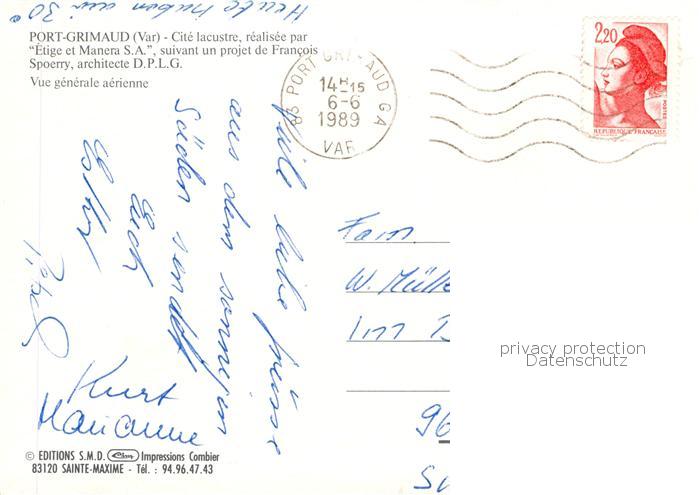 Heute haben wir 30°
PORT-GRIMAUD (Var) - Cité lacustre, réalisée par
"Étige et Manera S.A.", suivant un projet de François
Spoerry, architecte D.P.L.G.
Vue générale aérienne
83 PORT GRIMAUD GA
14 H 15
6-6
1989
VAR
2,20
POSTES
REPUBLIQUE FRANÇAISE
Viele liebe Grüsse
aus dem sonnigen
Süden sendet
Euch
Kurt
Marianne
Fam.
W. Mülle
Im
96
privacy protection
Datenschutz
© EDITIONS S.M.D. Cim Impressions Combier
83120 SAINTE-MAXIME - Tél. : 94.96.47.43